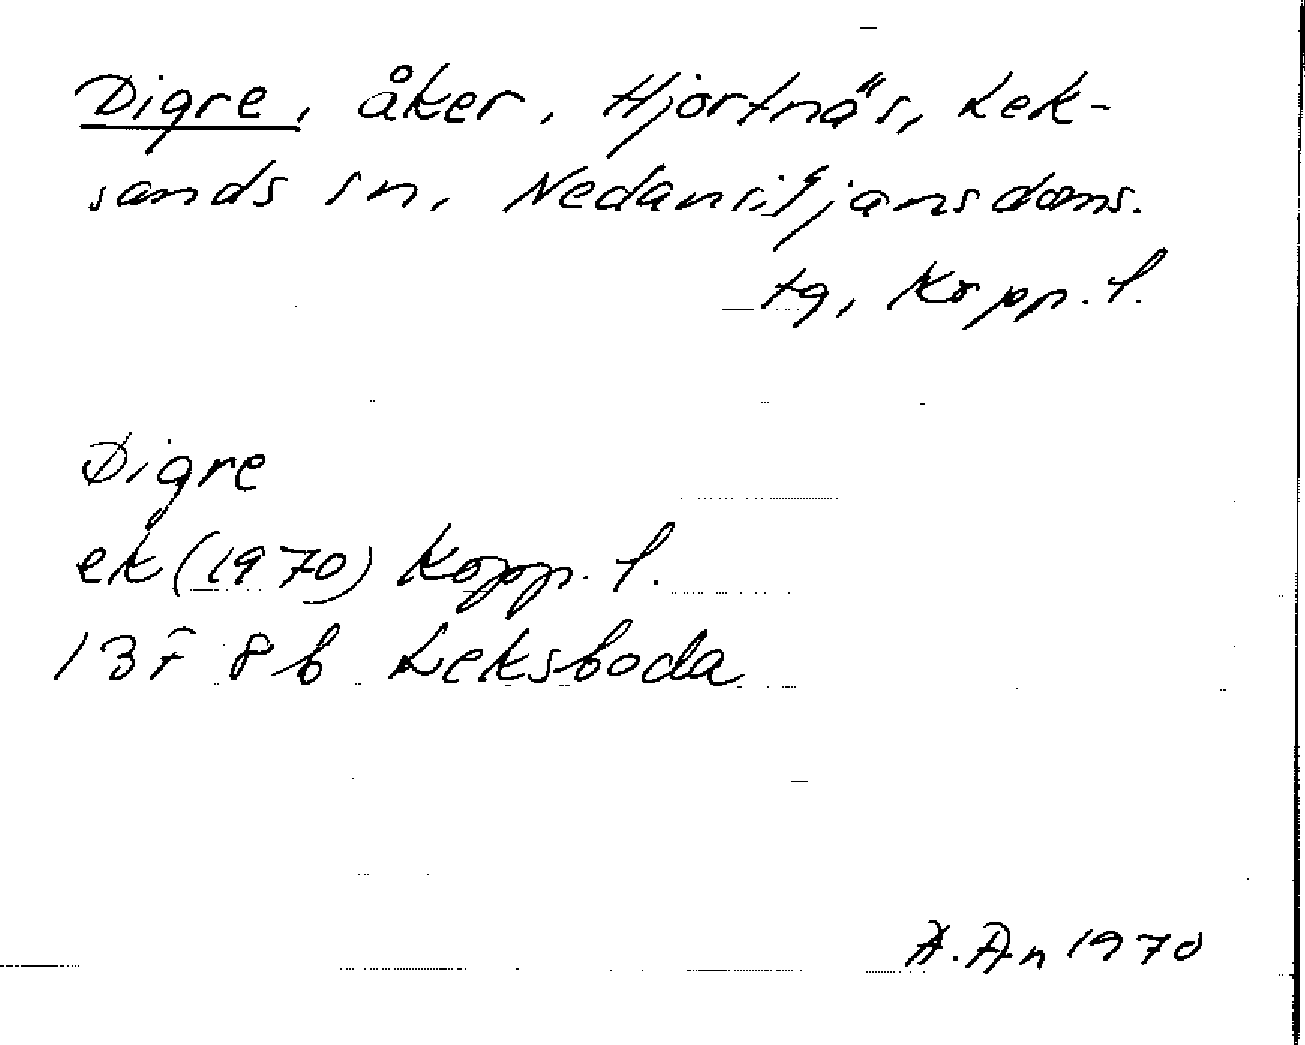 Digre, åker, Hjortnäs, Lek-
sands sn, Nedansiljansdoms.
tg, Kopp. l.
Digre
ek (1970) Kopp. l.
13F 8b Leksboda
A. An 1970